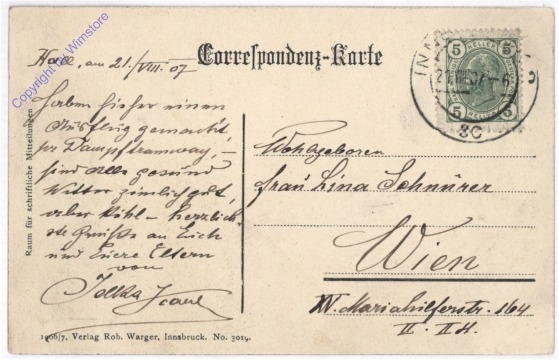 Copyright by Wimstore
Correspondenz-Karte
Hall, am 21./VIII. 07
Haben hieher einen
Ausflug gemacht,
per Dampftramway, –
sind alle gesund
Wetter ziemlich gut,
aber kühl – herzlich-
ste Grüße an Euch
und Euere Eltern
von
Raum für schriftliche Mitteilungen
5 HELLER 5
5 HELLER 5
INN
21.VIII.07-6
3C
Wohlgeboren
Frau Lina Schnürer
Wien
XV. Mariahilferstr. 164
II. 
1906/7. Verlag Rob. Warger, Innsbruck. No. 3019.